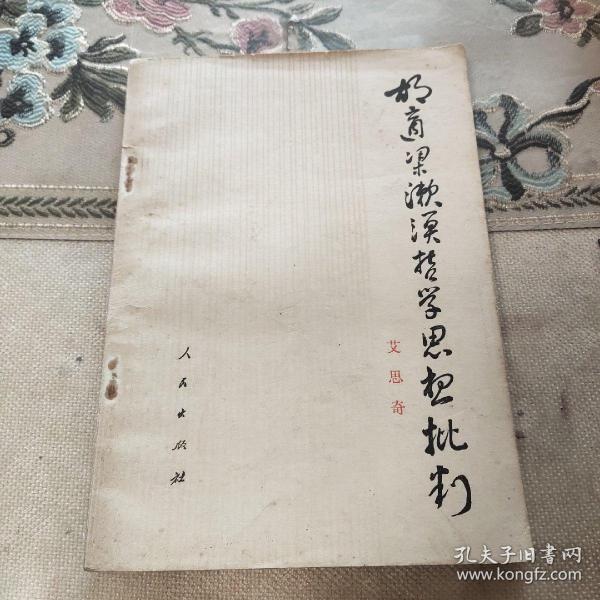 胡适梁漱溟哲学思想批判
艾思奇
人民出版社
孔夫子旧书网
www.kongfz.com